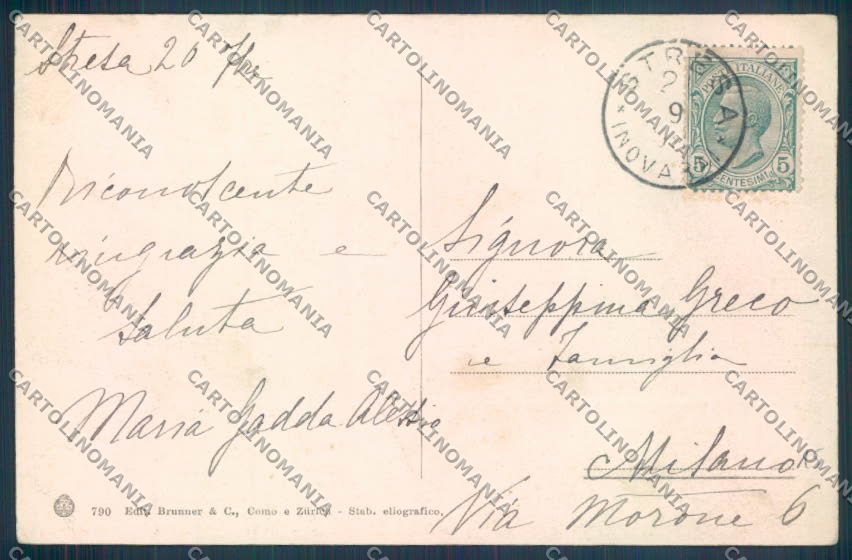 Stresa 20
Riconoscente
ringrazia e
saluta
Maria Gadda Alessio
790 Edit. Brunner & C., Como e Zürich - Stab. eliografico.
STRESA
2
9
NOVA
POSTE ITALIANE
5 CENTESIMI 5
Signora
Giuseppina Greco
e Famiglia
Milano
Via Morone 6
CARTOLINOMANIA